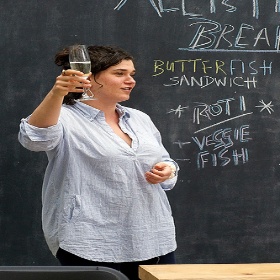 BREA
BUTTERFISH
SANDWICH
* ROTI *
- VEGGIE
- FISH